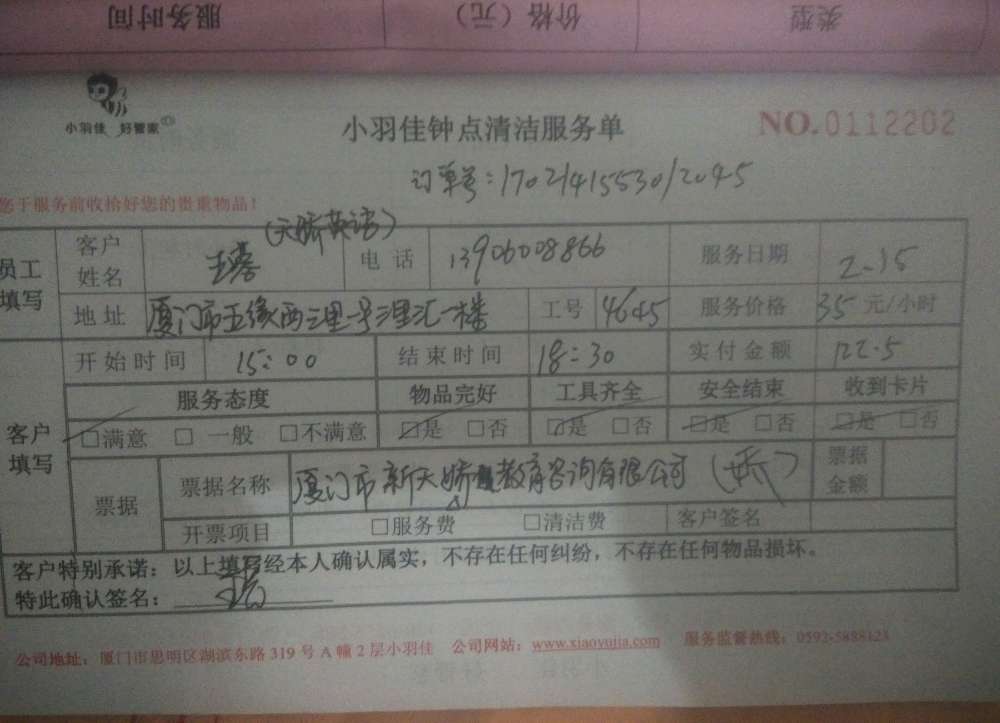 服务时间 价格（元） 类型
小羽佳 好管家
小羽佳钟点清洁服务单
NO.0112202
订单号：1702141553012045
您于服务前收拾好您的贵重物品！
员工填写
客户姓名 (天骄英语) 电话 13906008866 服务日期 2.15
地址 厦门市五缘西三里 号 里汇一楼 工号 4645 服务价格 35 元/小时
客户填写
开始时间 15:00 结束时间 18:30 实付金额 122.5
服务态度 物品完好 工具齐全 安全结束 收到卡片
□满意 □一般 □不满意 □是 □否 □是 □否 □是 □否 □是 □否
票据 票据名称 厦门市新天骄教育咨询有限公司（娇） 票据金额
开票项目 □服务费 □清洁费 客户签名
客户特别承诺：以上填写经本人确认属实，不存在任何纠纷，不存在任何物品损坏。
特此确认签名：
公司地址：厦门市思明区湖滨东路319号A幢2层小羽佳 公司网站：www.xiaoyujia.com 服务监督热线：0592-5888123